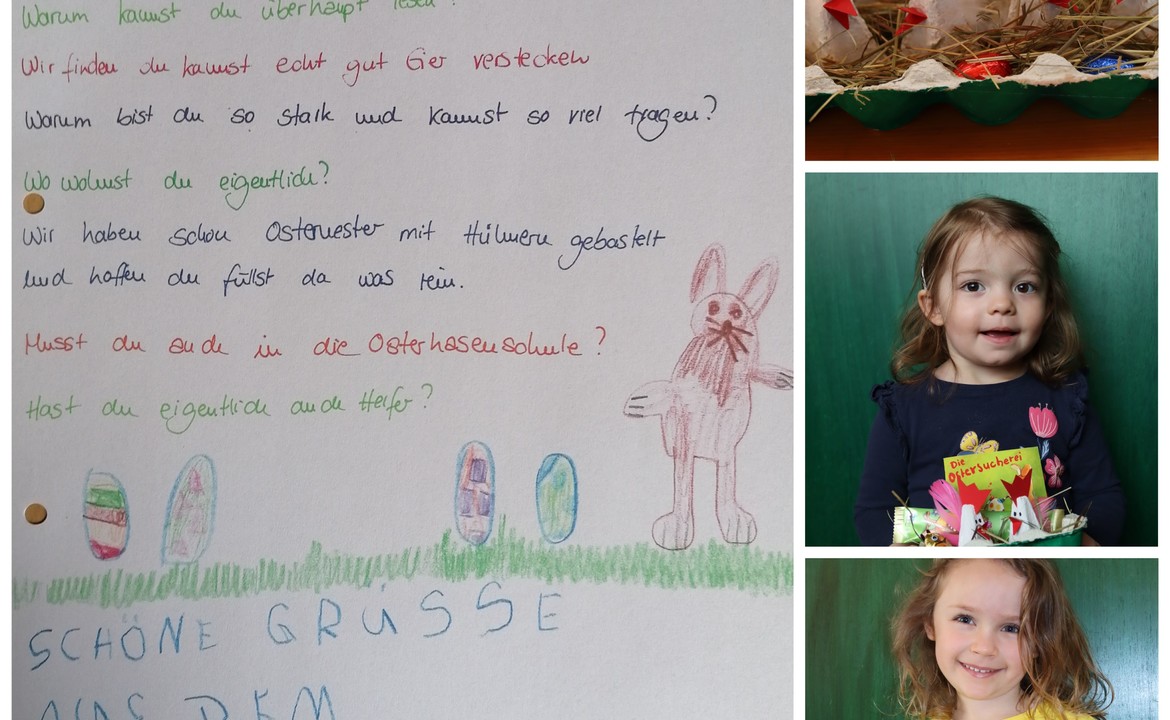 Warum kannst du überhaupt lesen?
Wir finden du kannst echt gut Eier verstecken
Warum bist du so stark und kannst so viel tragen?
Wo wohnst du eigentlich?
Wir haben schon Osternester mit Hühnern gebastelt
und hoffen du füllst da was rein.
Musst du auch in die Osterhasenschule?
Hast du eigentlich auch Helfer?
SCHÖNE GRÜSSE
AUS DEM
Die
Ostersucherei